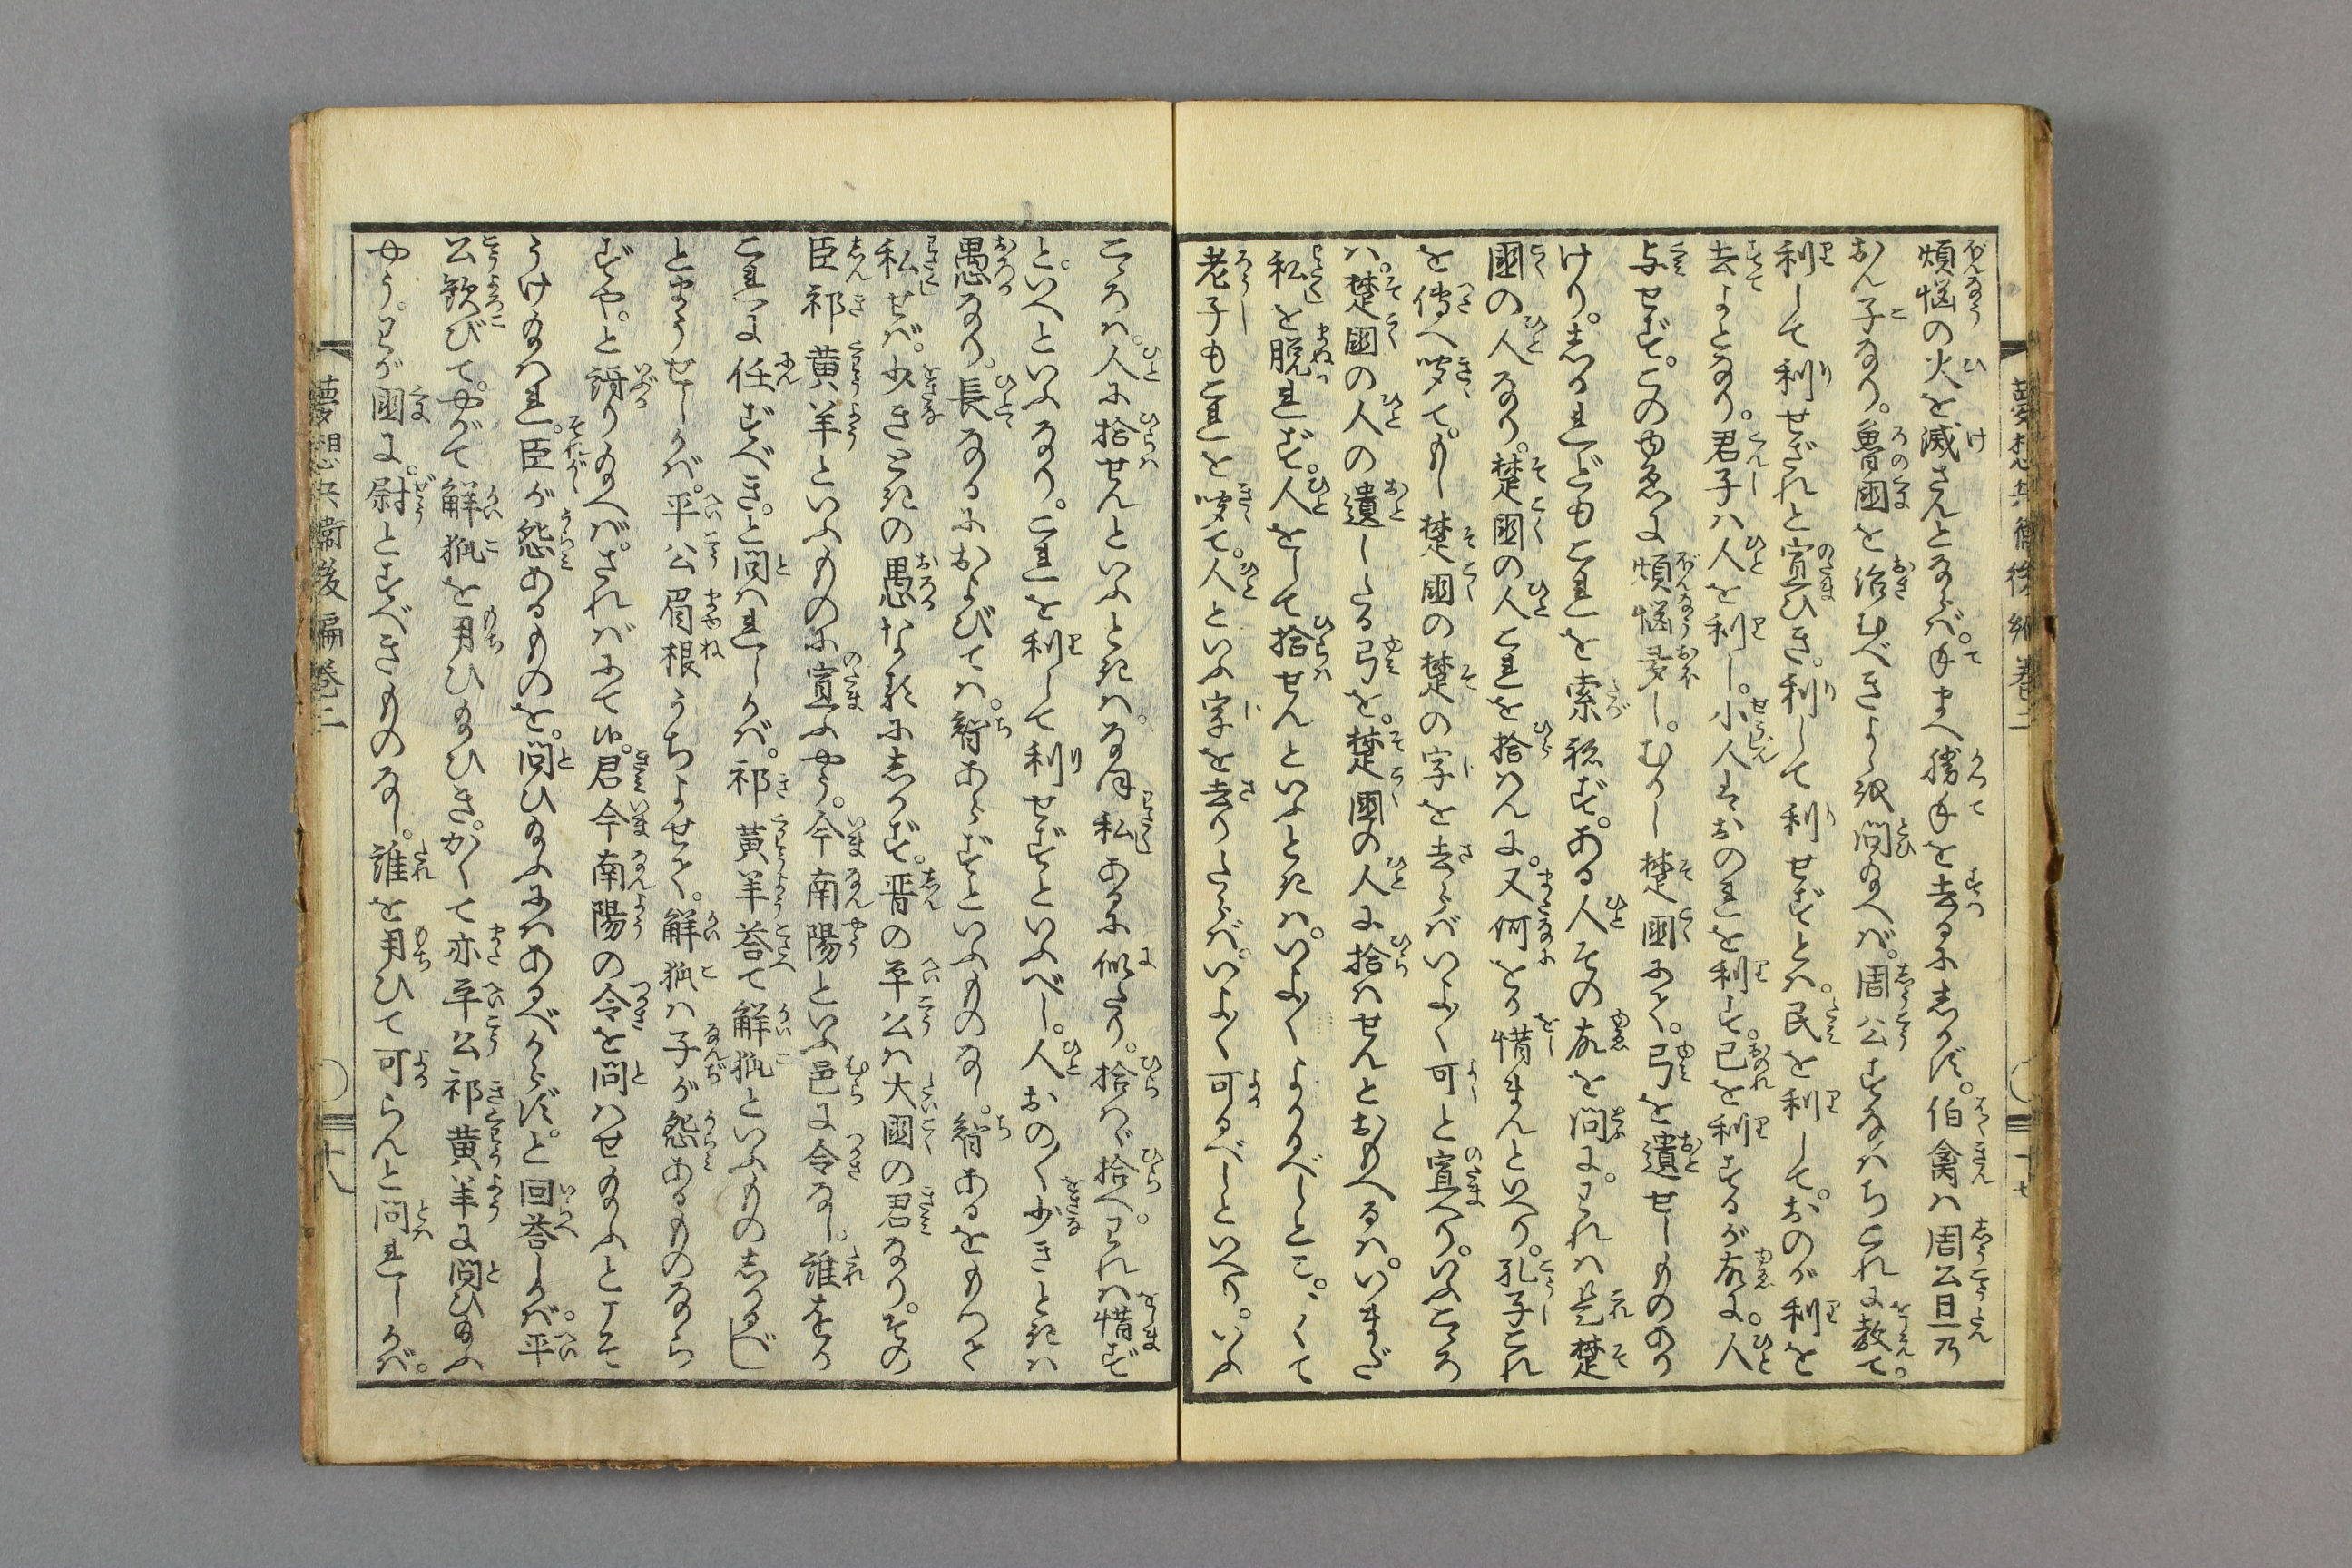 煩悩の火を滅さんとならば。手まへ勝手を去るにしかず。伯禽は周公旦乃
おん子なり。魯国を治むべきよしを問給へば。周公すなはちこれに教て。
利して利せざれと宣ひき。利して利せずとは。民を利して。おのが利を
去よとなり。君子ハ人を利し。小人はおのれを利す。己を利するが故に。人
与せず。このゆゑに煩悩多し。むかし楚国にて。弓を遺せしものあり
けり。しかれどもこれを索ねず。ある人その故を問に。われハ是楚
国の人なり。楚国の人これを拾はんに。又何をか惜まんといへり。孔子これ
を傳へ聞て。もし楚国の楚の字を去らばいよ〱可と宣へり。いふこゝろ
ハ。楚國の人の遺したる弓を。楚國の人に拾はせんとおもへるハ。いまだ
私を脱れず。人をして拾せんといふときハ。いよ〱よかるべしとこ。かくて
老子もこれを聞て。人といふ字を去りたらば。いよ〱可るべしといへり。いふ
こゝろハ。人に拾せんといふときハ。なほ私あるに似たり。拾はゞ拾へ。われハ惜ず
と。いへといふなり。これを利して利せずといふべし。人おの〱少きときハ
愚なり。長なるにおよびてハ。智あらずといふものなし。智あるをもつて
私せば。少きときの愚な好にしかず。晋の平公ハ大國の君なり。その
臣祁黄羊といふものに宣ふやう。今南陽といふ邑に令なし。誰をか
これに任ずべき。と問はれしかば。祁黄羊荅て解狐といふものしかるべし
とまうせしかば。平公眉根うちよせて。解狐ハ子が怨あるものなら
ずや。と訝り給へば。さればにて候。君今南陽の令を問はせ給ふとこそ
うけ給はれ。臣が怨あるものを。問ひ給ふにハあるべからず。と回荅しかば。平
公歓びて。やがて解狐を用ひ給ひき。かくて亦平公祁黄羊に問ひ給ふ
やう。わが國に。尉とすべきものなし。誰を用ひて可らんと問れしかば。
夢想兵衛後編巻二
十七
夢想兵衛後編巻二
十八